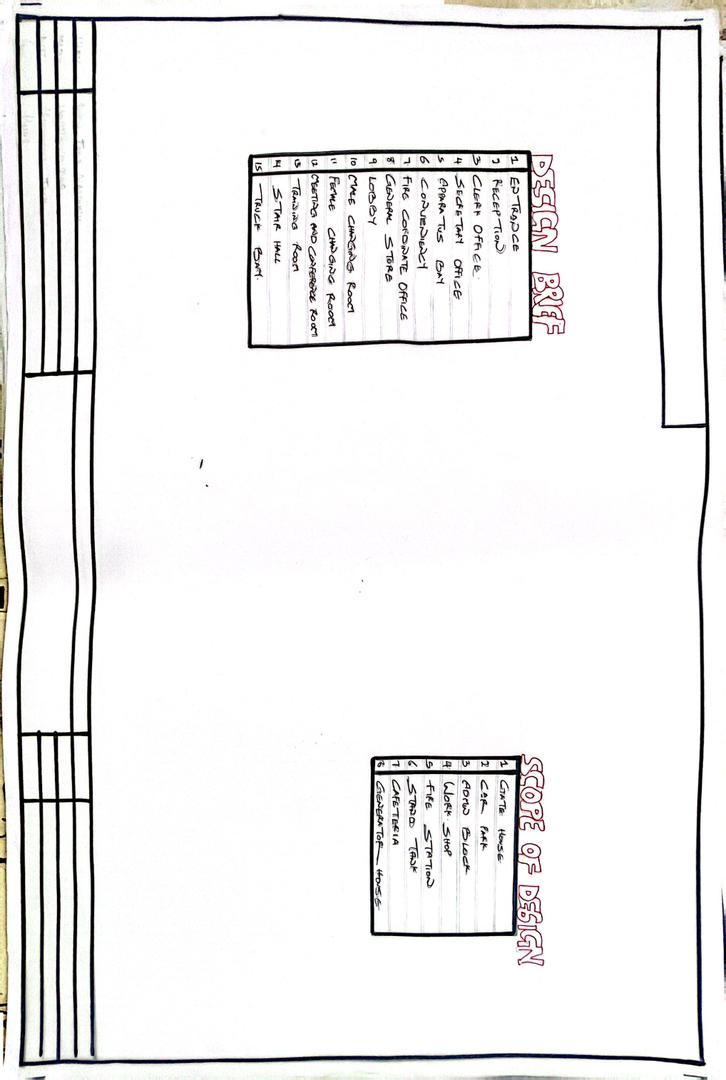 DESIGN BREF
1 ENTRANCE
2 RECEPTION
3 CLERK OFFICE
4 SECRETARY OFFICE
5 APPARATUS BAY
6 CONVENIENCY
7 FIRE CORDINATE OFFICE
8 GENERAL STORE
9 LOBBY
10 MALE CHANGING ROOM
11 FEMALE CHANGING ROOM
12 MEETING AND CONFERENCE ROOM
13 TRAINING ROOM
14 STAIR HALL
15 TRUCK BAY.
SCOPE OF DESIGN
1 GATE HOUSE
2 CAR PARK
3 ADMIN BLOCK
4 WORK SHOP
5 FIRE STATION
6 STAND TANK
7 CAFETERIA
8 GENERATOR HOUSE